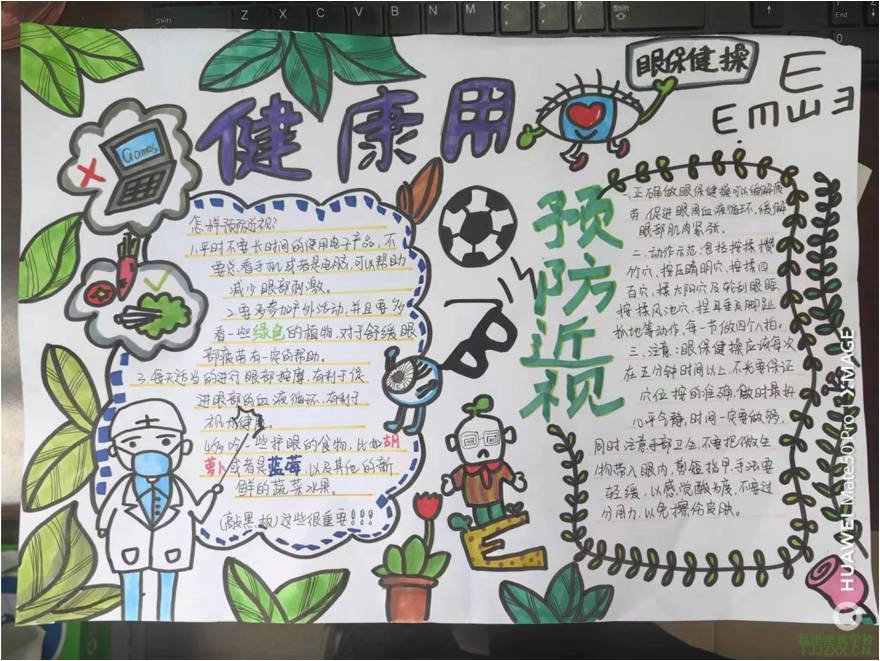 眼保健操
E
E m ш ヨ
健康用
预防近视
Games
怎样预防近视?
1.平时不要长时间的使用电子产品,不
要总看手机或者是电脑,可以帮助
减少眼部刺激。
2.要多参加户外活动,并且要多
看一些绿色的植物,对于舒缓眼
部疲劳有一定的帮助。
3.每天适当的进行眼部按摩,有利于促
进眼部的血液循环,有利于
视力健康。
4.多吃一些护眼的食物,比如胡
萝卜或者是蓝莓,以及其他的新
鲜的蔬菜水果。
(敲黑板)这些很重要!!!
一.正确做眼保健操可以缓解疲
劳,促进眼周血液循环,缓解
眼部肌肉紧张。
二.动作示范,包括按揉攒
竹穴,按压睛明穴,按揉四
百穴,揉太阳穴及轮刮眼眶,
按揉风池穴,捏耳垂及脚趾
抓地等动作,每一节做四个八拍。
三.注意:眼保健操应该每次
在五分钟时间以上,不光要保证
穴位按的准确,做时最好
心平气静,时间一定要做够,
同时注意手部卫生,不要把微生
物带入眼内,剪短指甲,手法要
轻缓,以感觉酸为度,不要过
分用力,以免擦伤皮肤。
E
HUAWEI Mate50 Pro | XMAGE
福建建筑学校
FJJZXX.CN